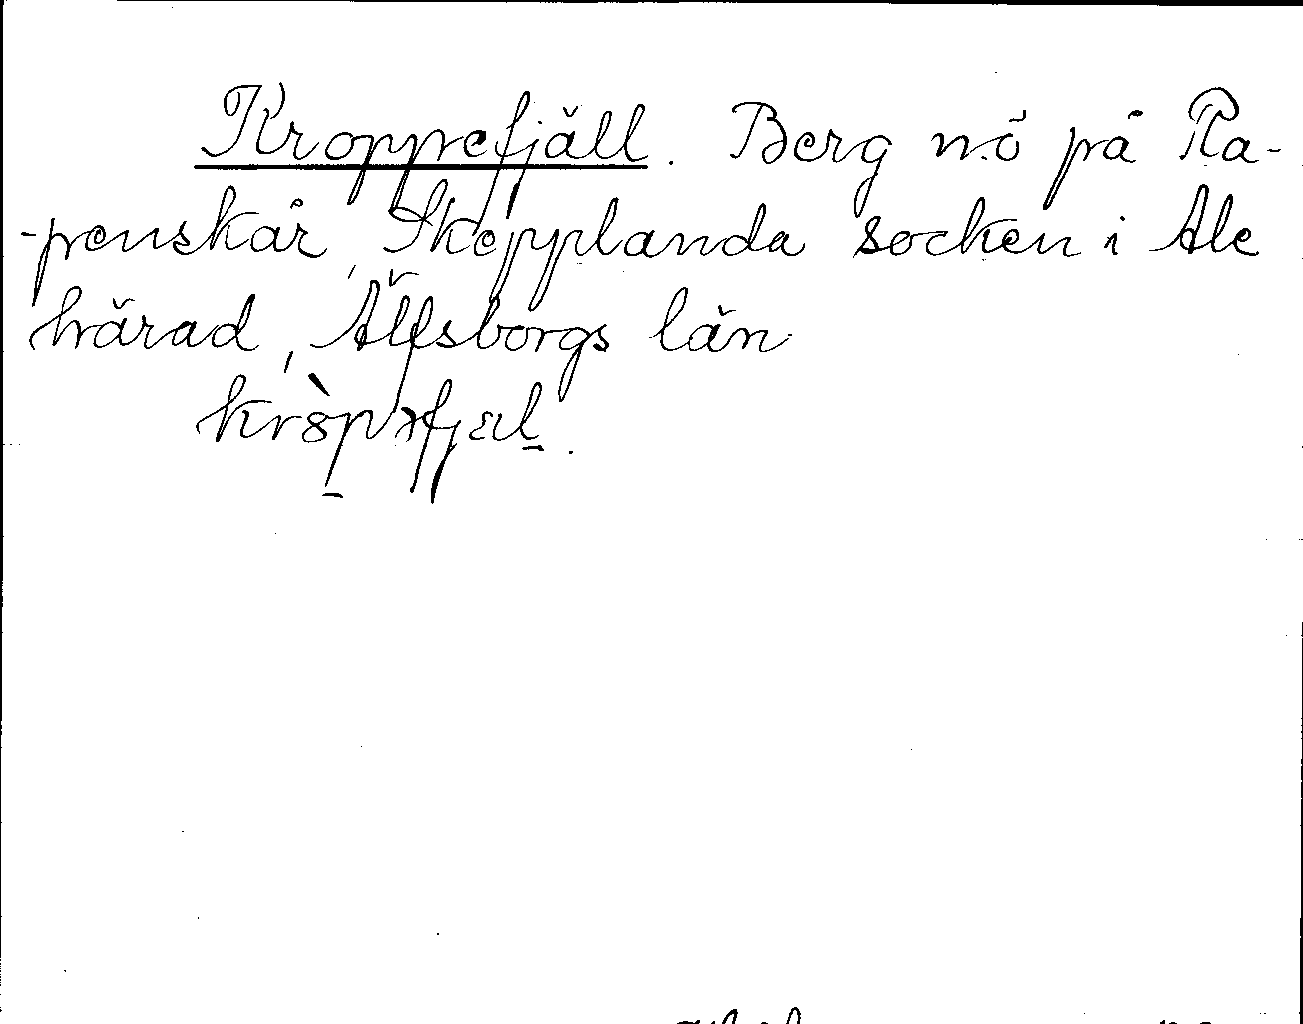 Kroppefjäll. Berg nö på Ra-
-penskår, Skepplanda socken i Ale
härad, Älfsborgs län